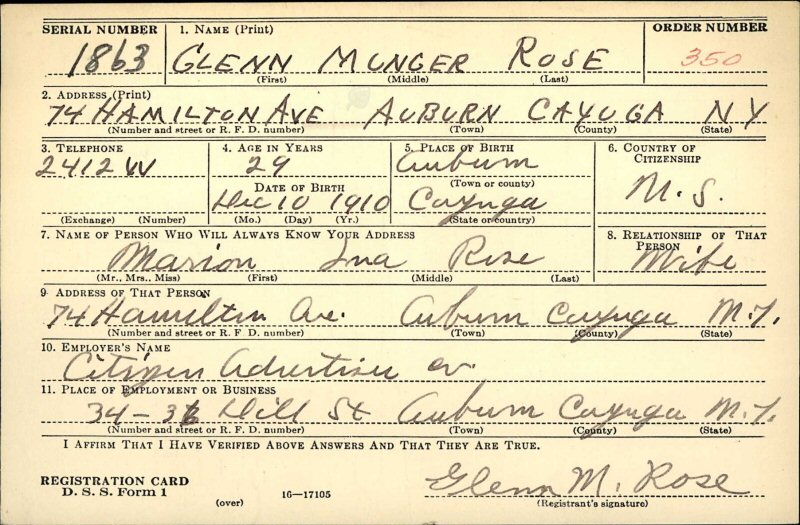 SERIAL NUMBER 1. NAME (Print) ORDER NUMBER
1863 GLENN MUNGER ROSE 350
(First) (Middle) (Last)
2. ADDRESS (Print)
74 HAMILTON AVE AUBURN CAYUGA NY
(Number and street or R. F. D. number) (Town) (County) (State)
3. TELEPHONE 4. AGE IN YEARS 5. PLACE OF BIRTH 6. COUNTRY OF CITIZENSHIP
2412 W 29 Auburn
DATE OF BIRTH (Town or county)
Dec 10 1910 Cayuga U.S.
(Exchange) (Number) (Mo.) (Day) (Yr.) (State or country)
7. NAME OF PERSON WHO WILL ALWAYS KNOW YOUR ADDRESS 8. RELATIONSHIP OF THAT PERSON
Marion Ina Rose Wife
(Mr., Mrs., Miss) (First) (Middle) (Last)
9. ADDRESS OF THAT PERSON
74 Hamilton Ave. Auburn Cayuga N.Y.
(Number and street or R. F. D. number) (Town) (County) (State)
10. EMPLOYER'S NAME
Citizen Advertiser
11. PLACE OF EMPLOYMENT OR BUSINESS
34-36 Dill St Auburn Cayuga N.Y.
(Number and street or R. F. D. number) (Town) (County) (State)
I AFFIRM THAT I HAVE VERIFIED ABOVE ANSWERS AND THAT THEY ARE TRUE.
REGISTRATION CARD
D. S. S. Form 1 Glenn M. Rose
(over) 16—17105 (Registrant's signature)